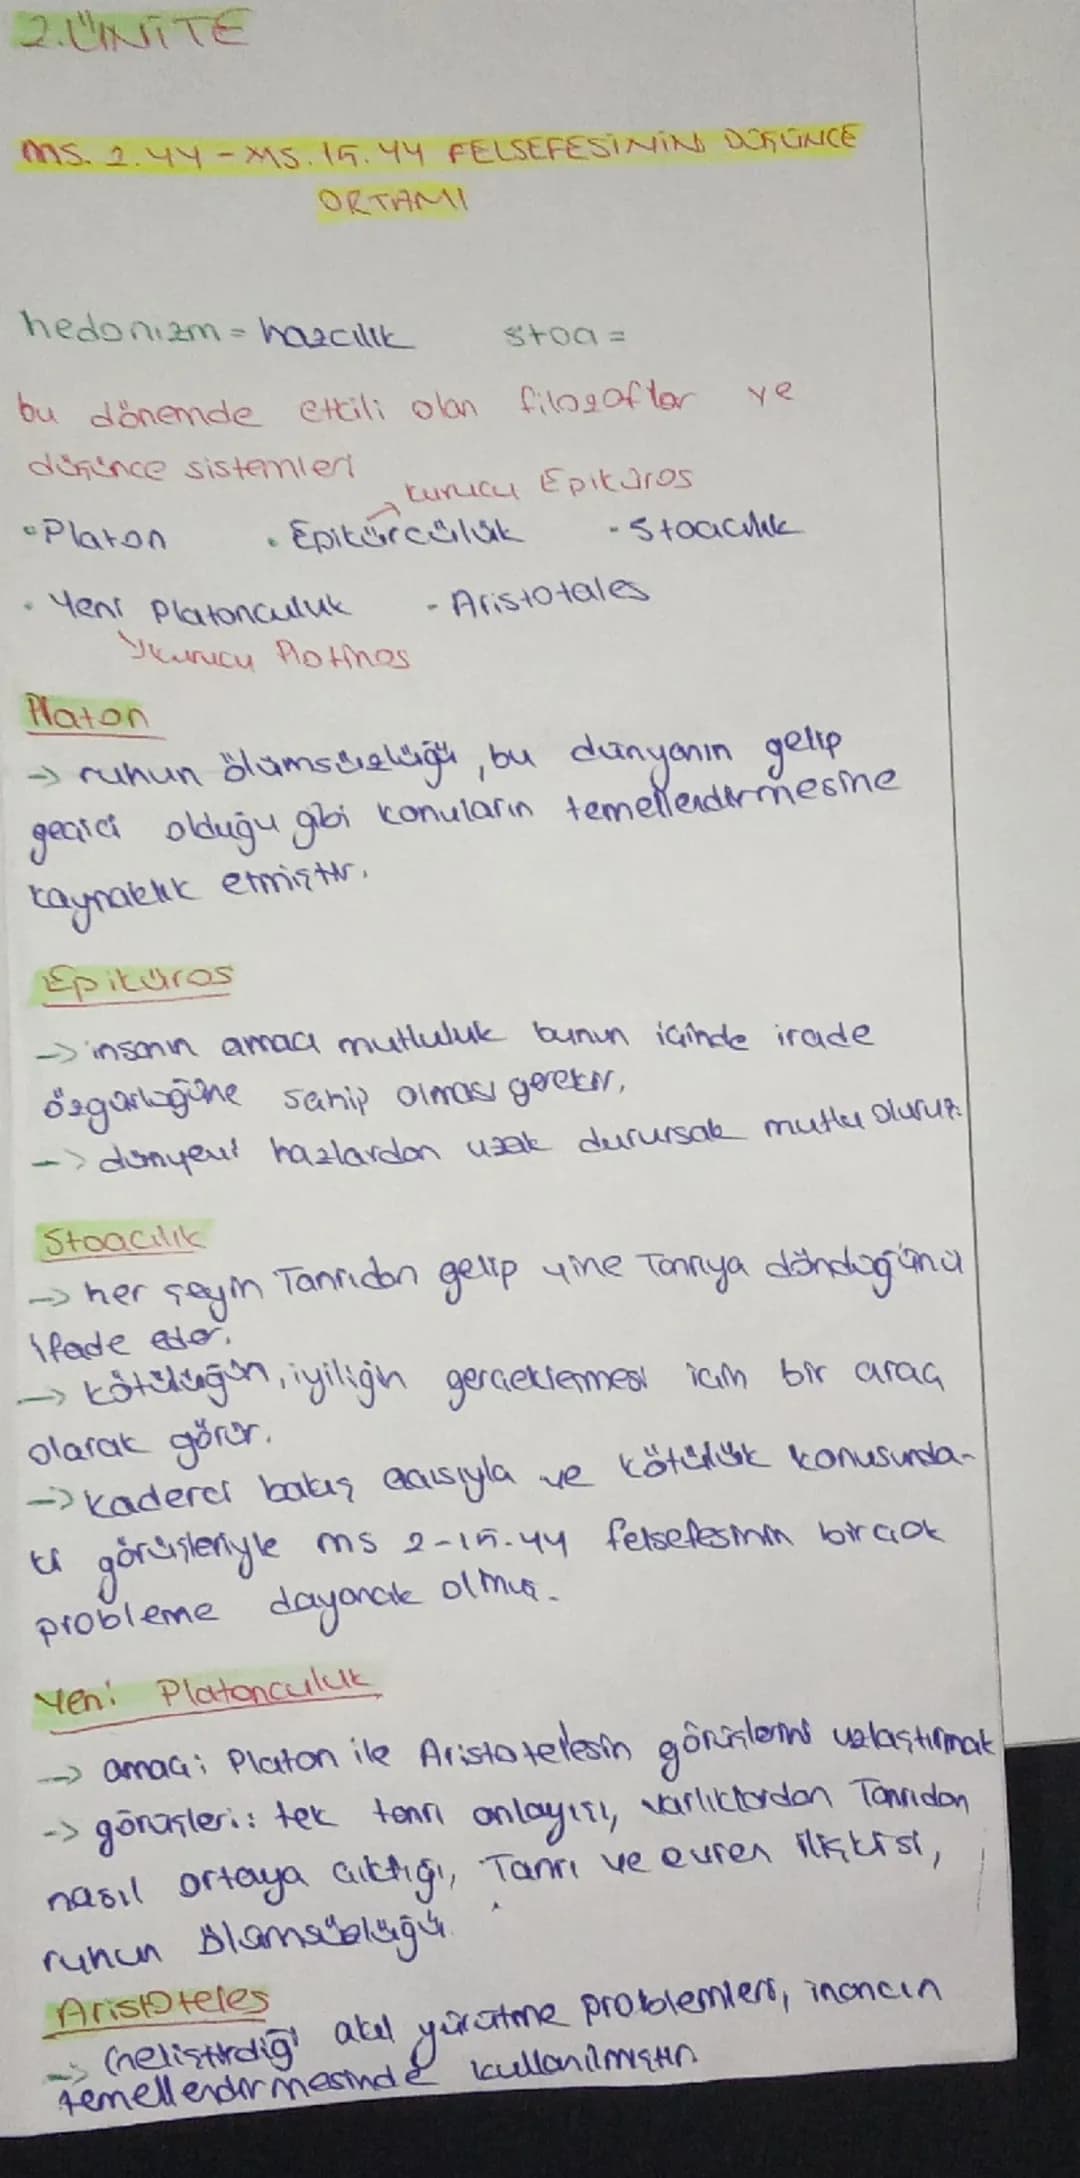 2.ÜNİTE
MS. 2.YY - MS. 15.YY FELSEFESİNİN DÜŞÜNCE
ORTAMI
hedonizm = hazcılık stoa =
bu dönemde etkili olan filozoflar ve
düşünce sistemleri
kurucu Epiküros
• Platon • Epikürcülük - Stoacılık
• Yeni Platonculuk - Aristotales
kurucu Plotinos
Platon
→ ruhun ölümsüzlüğü, bu dünyanın gelip
geçici olduğu gibi konuların temellendirmesine
kaynaklık etmiştir.
Epiküros
→ insanın amacı mutluluk bunun içinde irade
özgürlüğüne sahip olması gerekir.
→ dünyevi hazlardan uzak durursak mutlu oluruz.
Stoacılık
→ her şeyin Tanrıdan gelip yine Tanrıya döndüğünü
ifade eder.
→ kötülüğün, iyiliğin gerçeklemesi için bir araç
olarak görür.
→ kaderci bakış açısıyla ve kötülük konusunda-
ki görüşleriyle ms 2-15.yy felsefesinin birçok
probleme dayanak olmuş.
Yeni Platonculuk
→ amacı; Platon ile Aristotelesin görüşlerini uzlaştırmak
→ görüşleri: tek tanrı anlayışı, varlıklardan Tanrıdan
nasıl ortaya çıktığı, Tanrı ve evren ilişkisi,
ruhun ölümsüzlüğü.
Aristoteles
→ Geliştirdiği akıl yürütme problemleri, inancın
temellendirmesinde kullanılmıştır